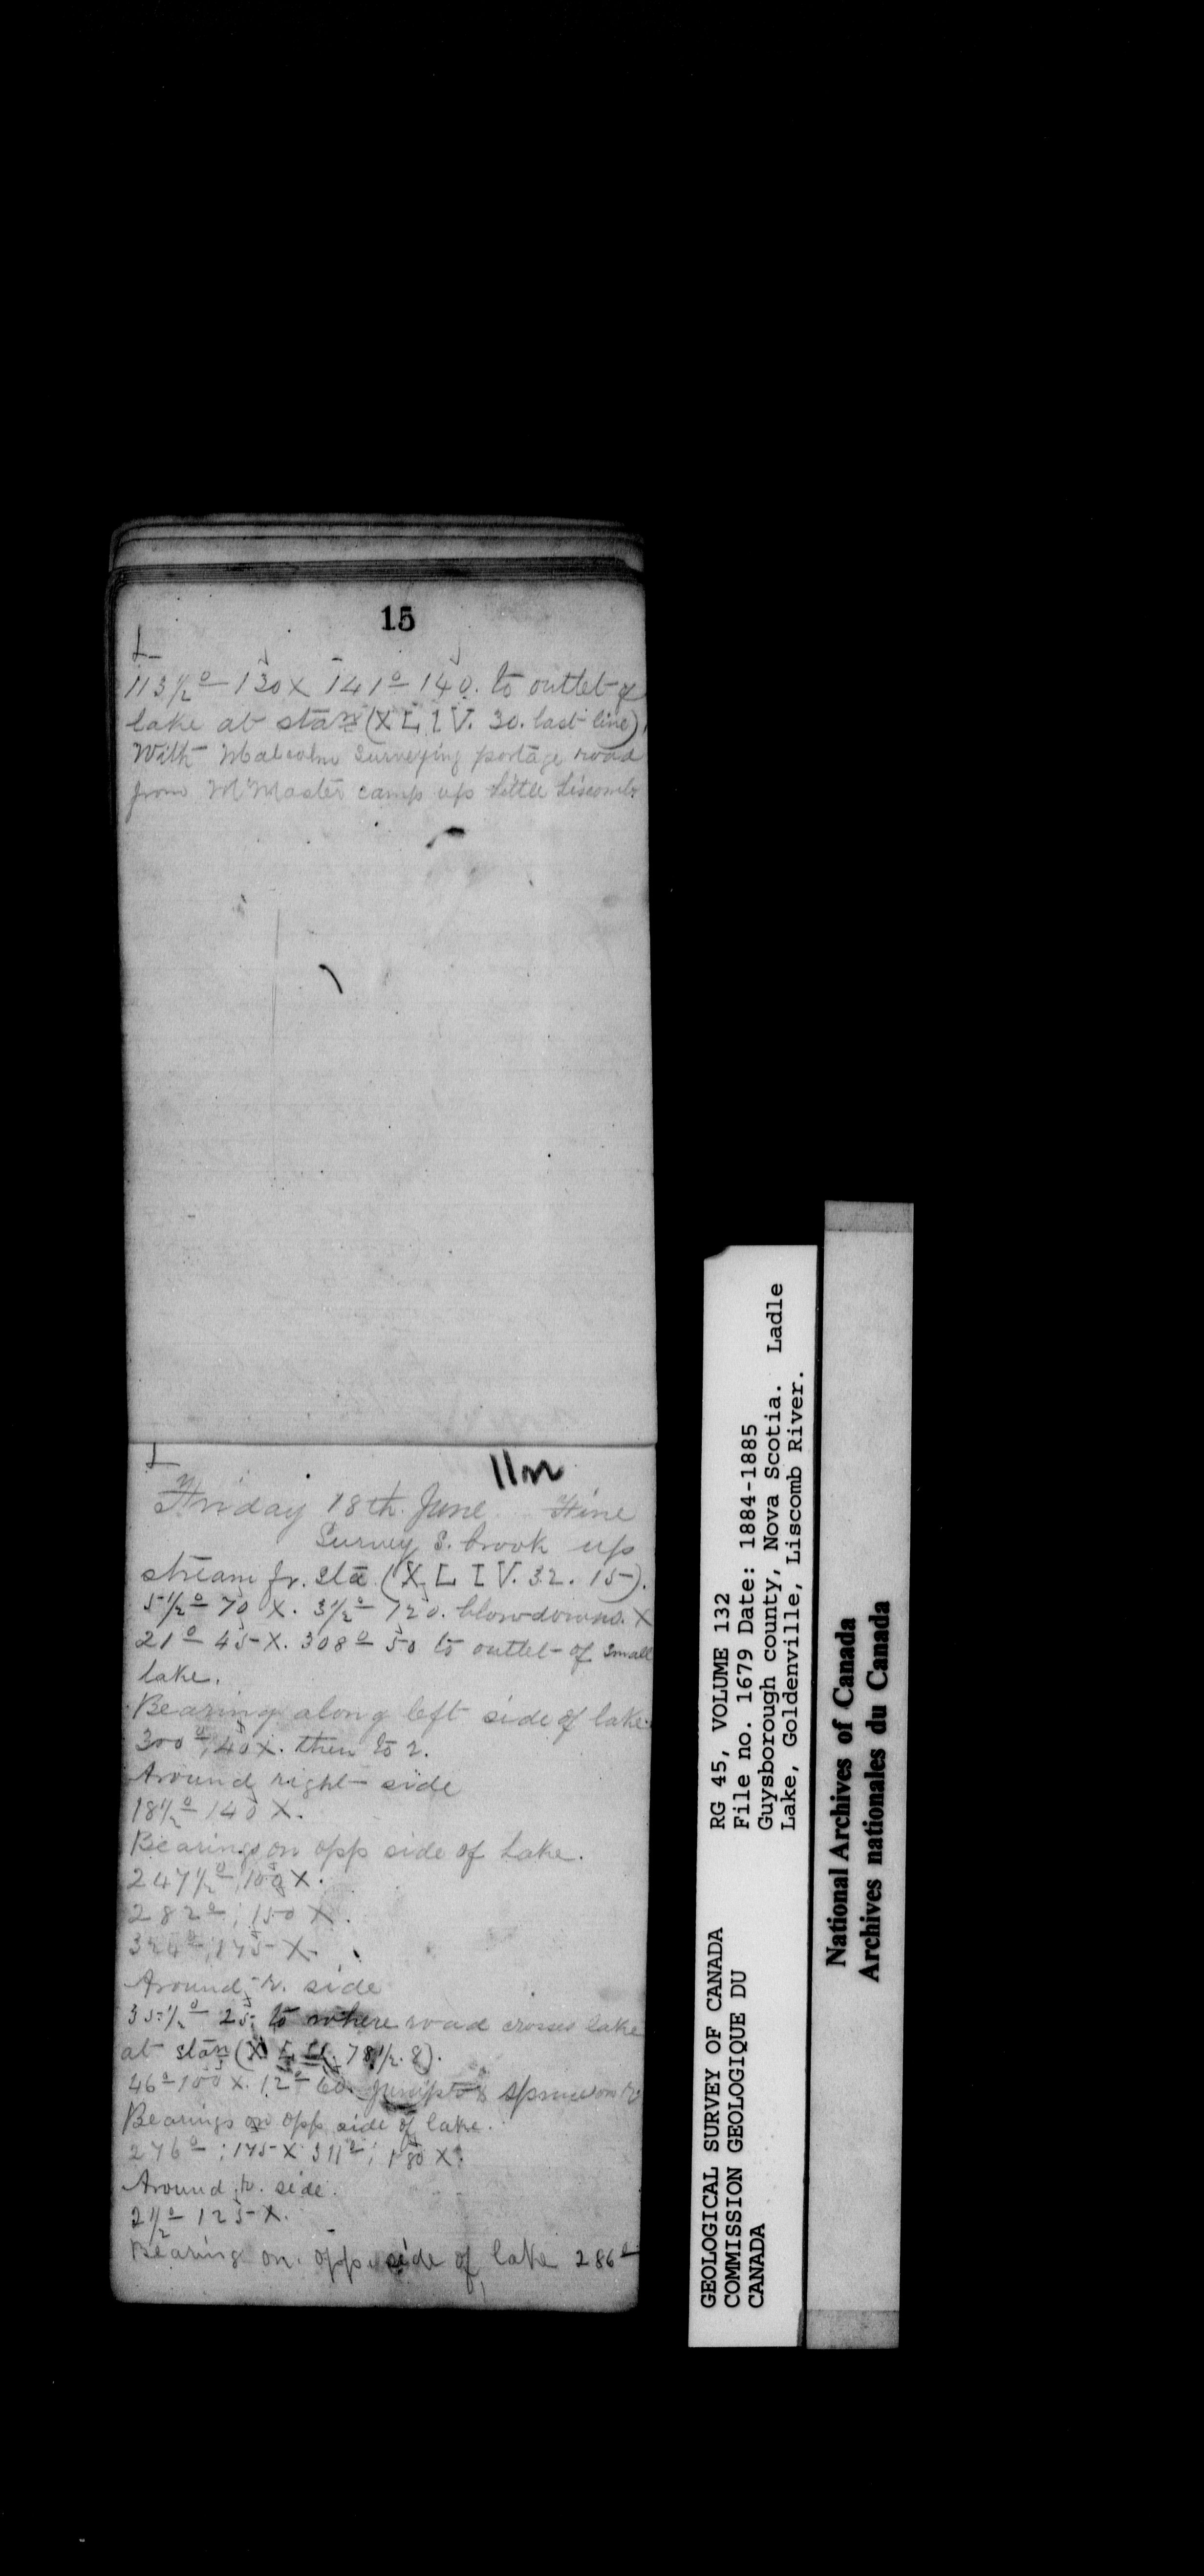 15
L
113½° 130 X 141° 140. to outlet of
lake at stan (XLIV. 30. last line).
With Malcolm Surveying portage road
from McMaster camp up Little Liscomb
L
11m
Friday 18th. June Fine
Survey S. brook up
stream fr. sta (XLIV. 32. 15).
5½° 70 X. 3½° 120. blowdowns. X
21° 45 X. 308° 50 to outlet of small
lake.
Bearing along left side of lake
300°; 40 X. then to r.
Around right side
18½° 140 X.
Bearings on opp side of Lake.
247½°; 100 X.
282°; 150 X.
324°; 175 X.
Around r. side
35½° 25; to where road crosses lake
at stan ( 78½. 8).
46° 100 X. 12° 60. spruce on r
Bearings on opp side of lake.
276°; 175 X 311°; 180 X.
Around r. side.
2½° 125 X.
Bearing on opp side of lake 286°
GEOLOGICAL SURVEY OF CANADA
COMMISSION GEOLOGIQUE DU
CANADA
RG 45, VOLUME 132
File no. 1679 Date: 1884-1885
Guysborough county, Nova Scotia. Ladle
Lake, Goldenville, Liscomb River.
National Archives of Canada
Archives nationales du Canada